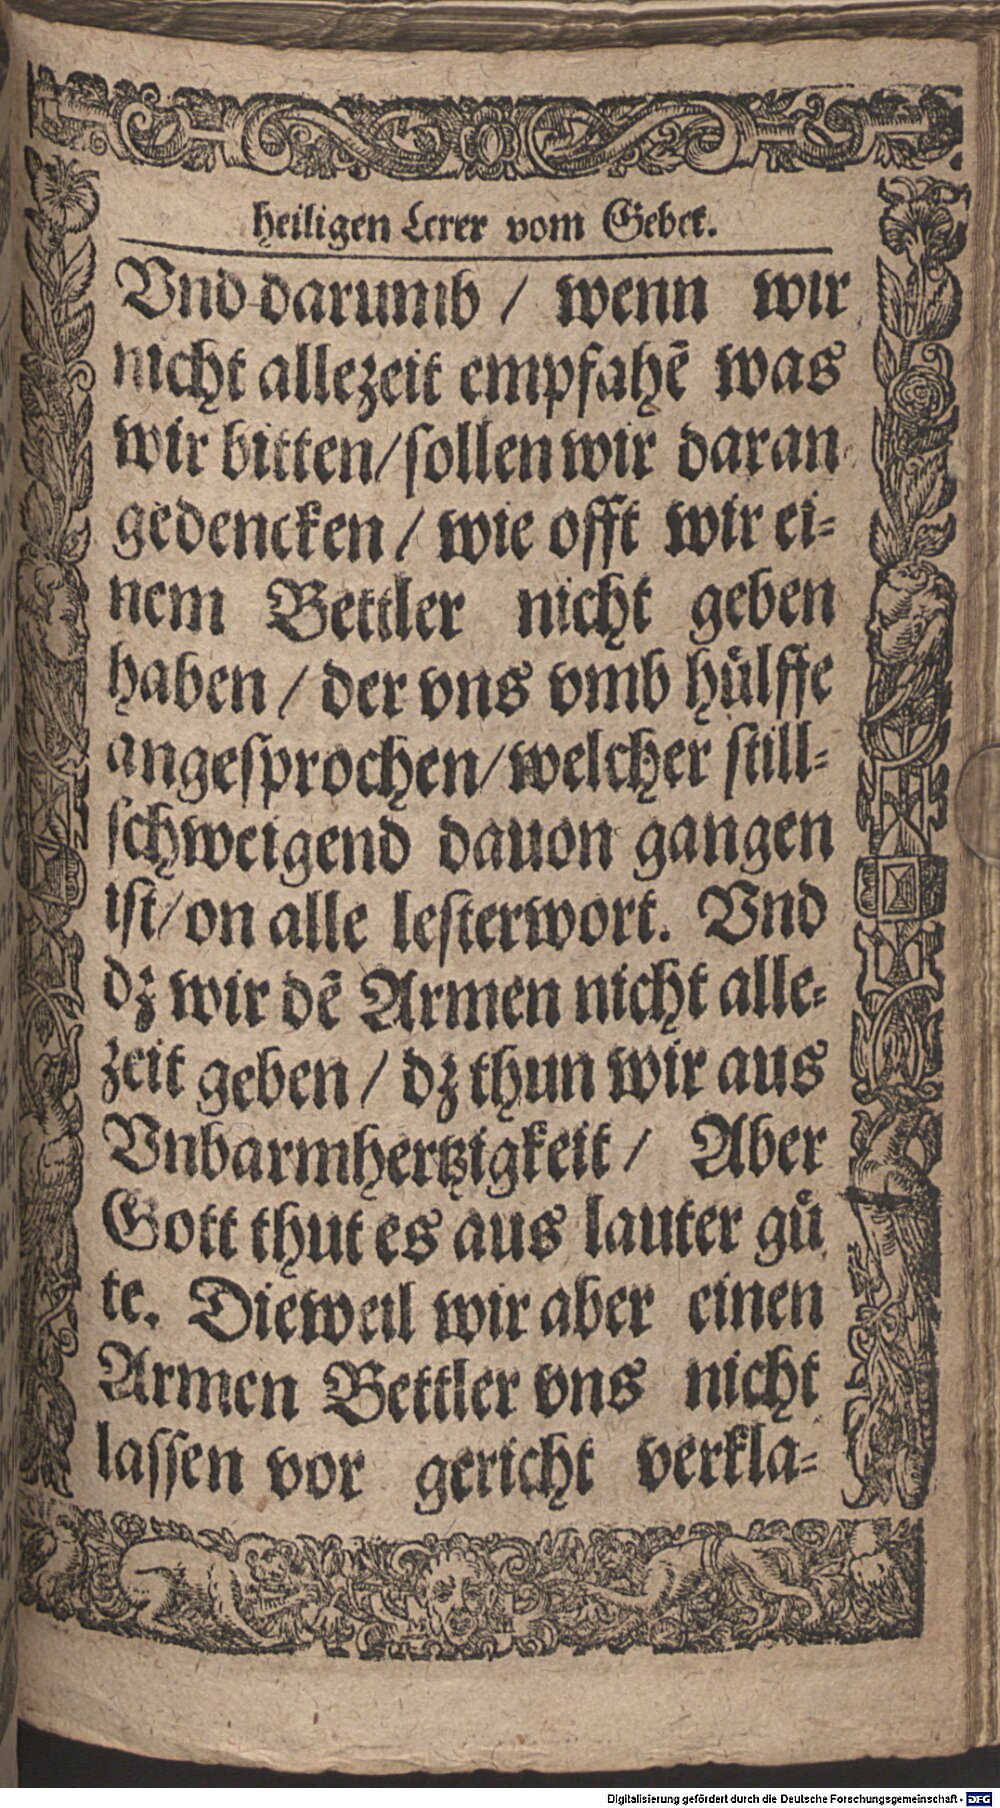 heiligen Lerer vom Gebet.
Vnd darumb / wenn wir
nicht allezeit empfahē was
wir bitten / sollen wir daran
gedencken / wie offt wir ei-
nem Bettler nicht geben
haben / der vns vmb hůlffe
angesprochen / welcher still-
schweigend dauon gangen
ist / on alle lesterwort. Vnd
dz wir dē Armen nicht alle-
zeit geben / dz thun wir aus
Vnbarmhertzigkeit / Aber
Gott thut es aus lauter gů
te. Dieweil wir aber einen
Armen Bettler vns nicht
lassen vor gericht verkla-
Digitalisierung gefördert durch die Deutsche Forschungsgemeinschaft - DFG